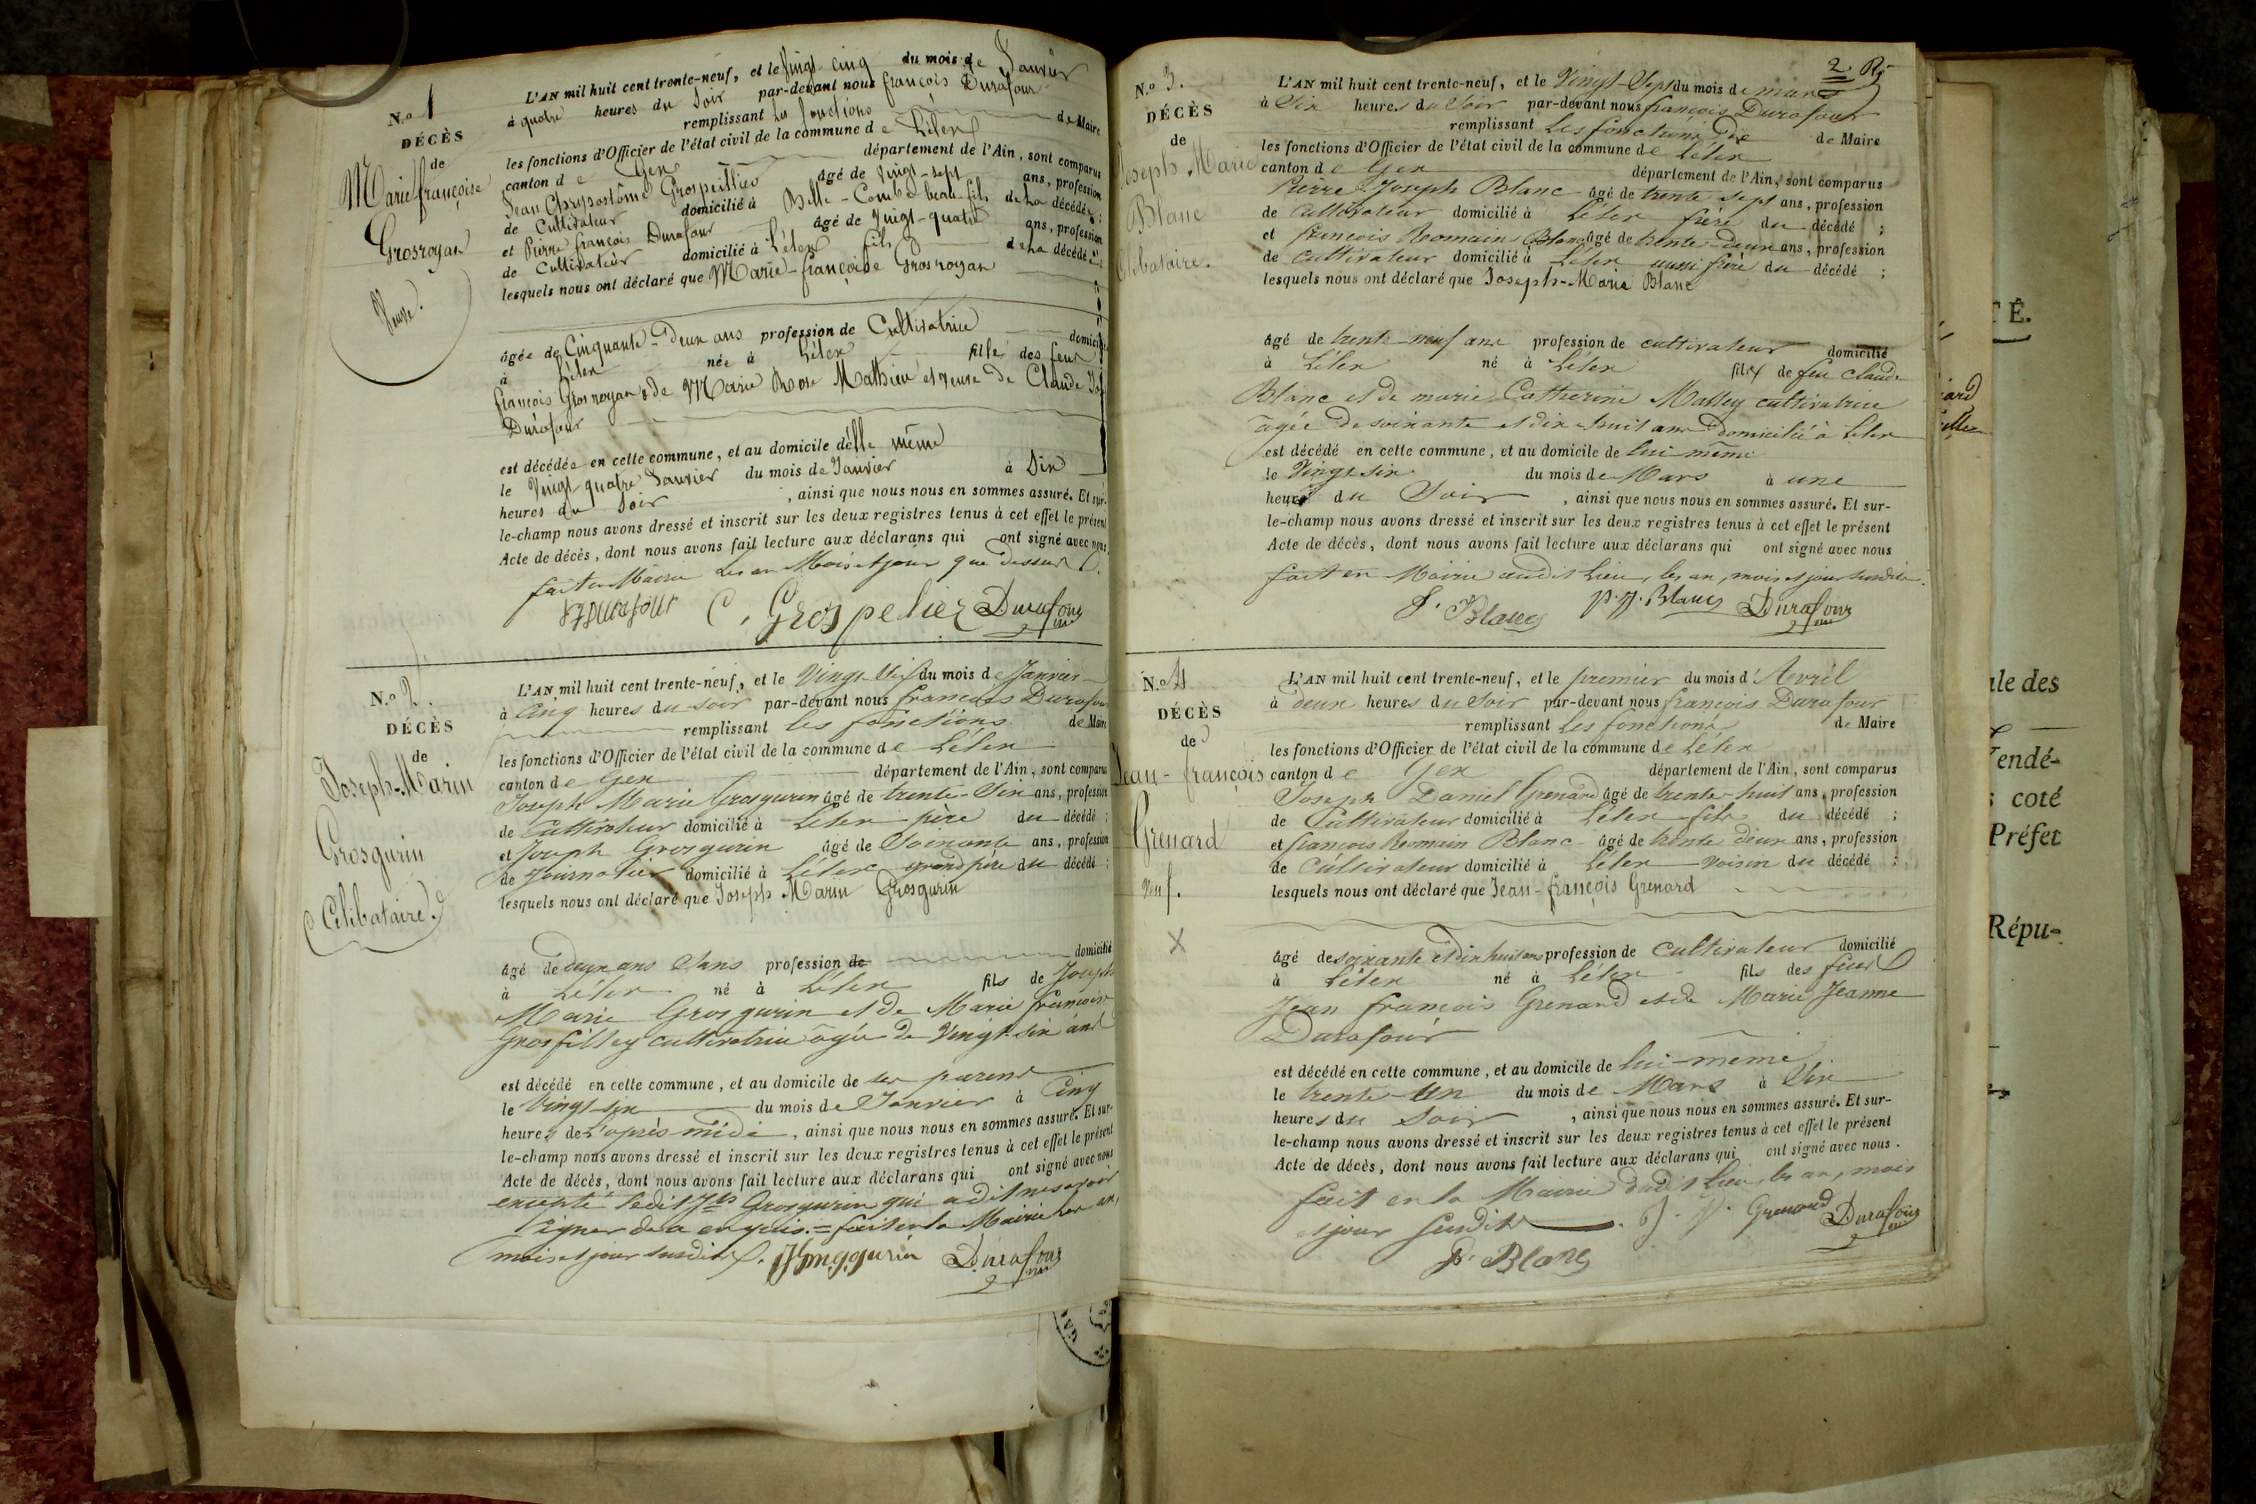 N.o 1
DÉCÈS
de
Marie françoise
Grosroyan
Veuve.
L'AN mil huit cent trente-neuf, et le Vingt cinq du mois de Janvier
à quatre heures du Soir par-devant nous françois Durafour
remplissant Les fonctions de Maire
les fonctions d'Officier de l'état civil de la commune de Lélex
canton de Gex département de l'Ain, sont comparus
Jean Chrysostôme Grospellier âgé de Vingt-sept ans, profession
de Cultivateur domicilié à Belle-Combe beau-fils de La décédée ;
et Pierre françois Durafour âgé de Vingt-quatre ans, profession
de Cultivateur domicilié à Lélex fils de La décédée ;
lesquels nous ont déclaré que Marie-françoise Grosroyan
âgée de Cinquante-Deux ans profession de Cultivatrice domicilié
à Lélex née à Lélex fille des feux
françois Grosroyan & de Marie Rose Mathieu et veuve de Claude
Durafour
est décédée en cette commune, et au domicile d'elle même
le Vingt quatre Janvier du mois de Janvier à Six
heures du Soir , ainsi que nous nous en sommes assuré. Et sur-
le-champ nous avons dressé et inscrit sur les deux registres tenus à cet effet le présent
Acte de décès, dont nous avons fait lecture aux déclarans qui ont signé avec nous
fait en Mairie Les an Mois et jour que dessus.
Durafour C. Grospelier Durafour
N.o 2.
DÉCÈS
de
Joseph-Marin
Grosgurin
Célibataire.
L'AN mil huit cent trente-neuf, et le Vingt Six du mois de Janvier
à Cinq heures du soir par-devant nous francois Durafour
remplissant les fonctions de Maire
les fonctions d'Officier de l'état civil de la commune de Lélex
canton de Gex département de l'Ain, sont comparus
Joseph Marie Grosgurin âgé de trente-Six ans, profession
de Cultivateur domicilié à Lélex père du décédé ;
et Joseph Grosgurin âgé de Soixante ans, profession
de Journalier domicilié à Lélex grand père du décédé ;
lesquels nous ont déclaré que Joseph Marin Grosgurin
âgé de deux ans Sans profession de domicilié
à Lélex né à Lélex fils de Joseph
Marie Grosgurin et de Marie françoise
Grosfilley cultivatrice âgée de Vingt-six ans
est décédé en cette commune, et au domicile de ses parens
le Vingt-six du mois de Janvier à Cinq
heures de L'après midi , ainsi que nous nous en sommes assuré. Et sur-
le-champ nous avons dressé et inscrit sur les deux registres tenus à cet effet le présent
Acte de décès, dont nous avons fait lecture aux déclarans qui ont signé avec nous
excepté ledit Jh Grosgurin qui a dit ne savoir
Signer de ce enquis. = fait en la Mairie les an,
mois et jour susdits. Grosgurin Durafour
2
N.o 3.
DÉCÈS
de
Joseph Marie
Blanc
Célibataire.
L'AN mil huit cent trente-neuf, et le Vingt-Sept du mois de mars
à Six heures du Soir par-devant nous françois Durafour
remplissant Les fonctions de de Maire
les fonctions d'Officier de l'état civil de la commune de Lélex
canton de Gex département de l'Ain, sont comparus
Pierre Joseph Blanc âgé de trente sept ans, profession
de Cultivateur domicilié à Lélex frère du décédé ;
et francois Romain Blanc âgé de trente-deux ans, profession
de Cultivateur domicilié à Lélex aussi frère du décédé ;
lesquels nous ont déclaré que Joseph-Marie Blanc
âgé de trente-neuf ans profession de cultivateur domicilié
à Lélex né à Lélex fils de feu Claude
Blanc et de marie Catherine Malley cultivatrice
âgée de soixante et dix-huit ans Domicilié à Lélex
est décédé en cette commune, et au domicile de lui-même
le Vingt six du mois de Mars à une
heure du Soir , ainsi que nous nous en sommes assuré. Et sur-
le-champ nous avons dressé et inscrit sur les deux registres tenus à cet effet le présent
Acte de décès, dont nous avons fait lecture aux déclarans qui ont signé avec nous
fait en Mairie audit Lieu, les an, mois et jour susdits.
f. Blanc P. J. Blanc Durafour
N.o 4
DÉCÈS
de
Jean-françois
Grenard
Veuf.
L'AN mil huit cent trente-neuf, et le premier du mois d'Avril
à deux heures du Soir par-devant nous françois Durafour
remplissant Les fonctions de Maire
les fonctions d'Officier de l'état civil de la commune de Lélex
canton de Gex département de l'Ain, sont comparus
Joseph Daniel Grenard âgé de trente-huit ans, profession
de Cultivateur domicilié à Lélex fils du décédé ;
et françois Romain Blanc âgé de trente deux ans, profession
de Cultivateur domicilié à Lélex voisin du décédé ;
lesquels nous ont déclaré que Jean-françois Grenard
âgé de soixante et dix huit ans profession de Cultivateur domicilié
à Lélex né à Lélex fils des feus
Jean francois Grenard et de Marie Jeanne
Durafour
est décédé en cette commune, et au domicile de lui-même
le trente-un du mois de Mars à Six
heures du Soir , ainsi que nous nous en sommes assuré. Et sur-
le-champ nous avons dressé et inscrit sur les deux registres tenus à cet effet le présent
Acte de décès, dont nous avons fait lecture aux déclarans qui ont signé avec nous.
fait en la Mairie dudit Lieu, les an, mois
et jour susdits. Grenard Durafour
f. Blanc
TÉ.
ale des
Vendé-
coté
Préfet
Répu-